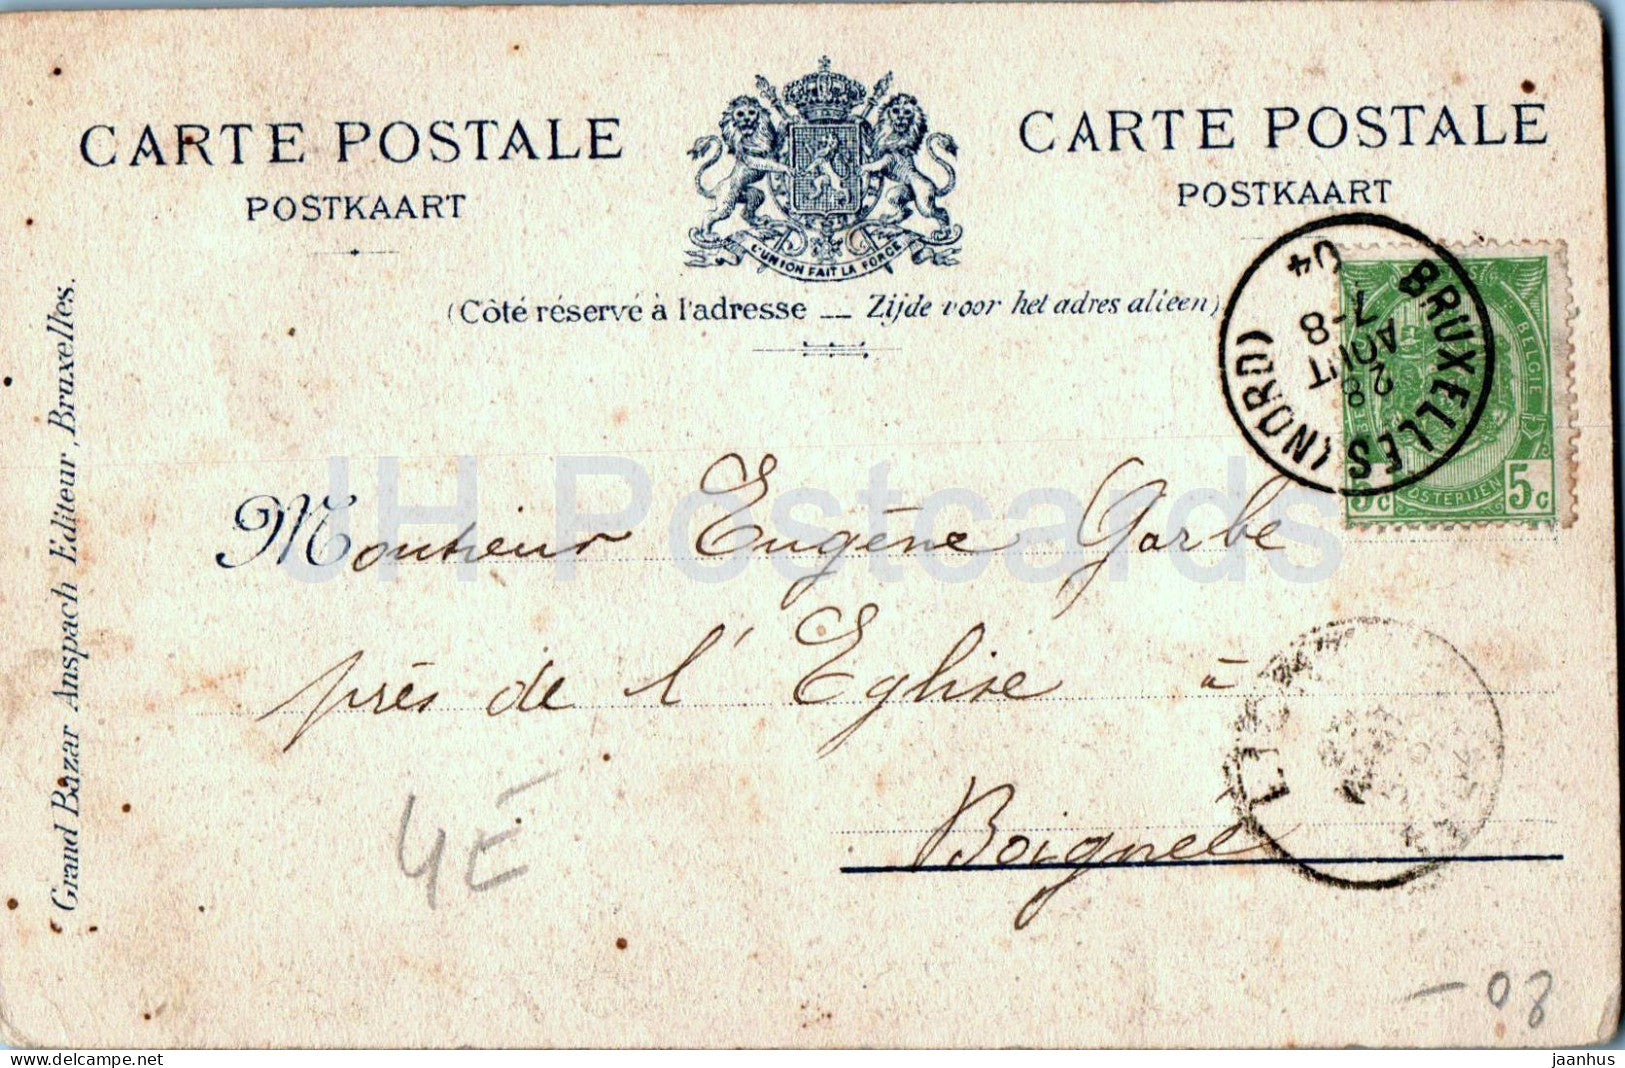 CARTE POSTALE
POSTKAART
CARTE POSTALE
POSTKAART
L'UNION FAIT LA FORCE
(Côté réservé à l'adresse __ Zijde voor het adres alleen)
BRUXELLES (NORD)
7-8
28
AOUT
04
BELGIE
5c
OSTERIJEN
5c
Grand Bazar Anspach Editeur, Bruxelles.
JH Postcards
Monsieur Eugène Garbe
près de l'Eglise à
Boignée
4E
-08
jaanhus
delcampe.net